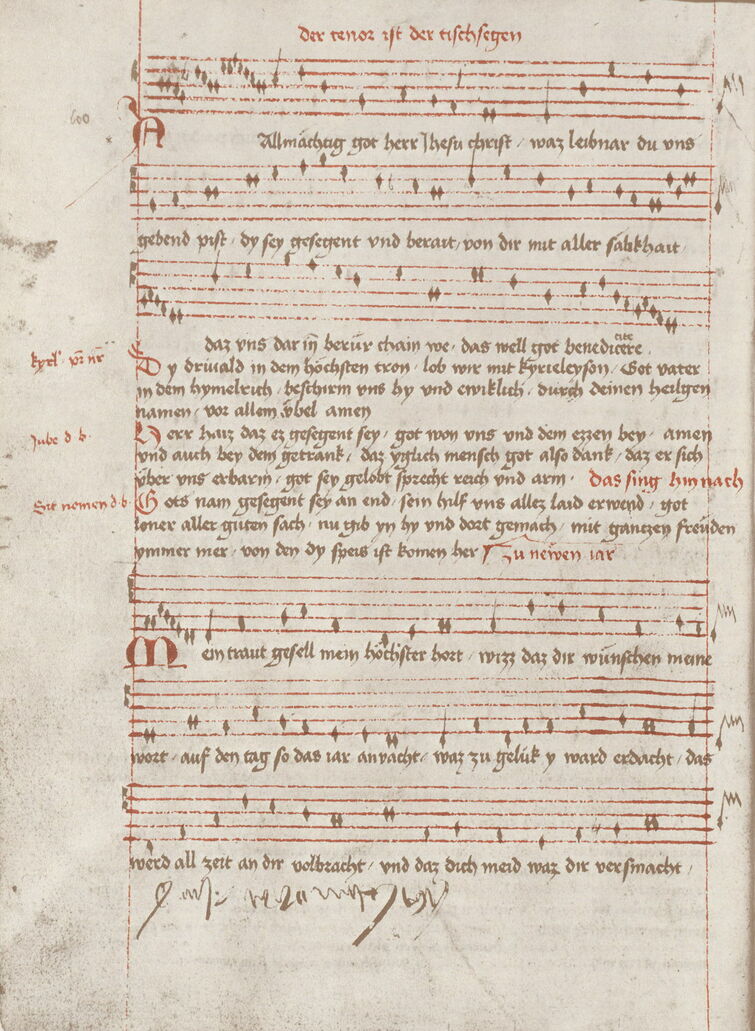 der tenor ist der tischsegen
Allmächtig got herr Jhesu christ / waz leibnar du uns
gebend pist / dy sey gesegent vnd berait / von dir mit aller sälikhait
daz vns dar in berür chain we / das well got benedicere
cite
kyrl' pr nr
Dy drivald in dem höchsten tron / lob wir mit kyrieleyson / Got vater
in dem hymelrich / beschirm vns hy vnd ewiklich / durch deinen heilgen
namen / vor allem übel amen
Jube d b
Herr haiz daz ez gesegent sey / got won vns vnd dem ezzen bey / amen
vnd auch bey dem getrank / daz yglich mensch got also dank / daz er sich
über vns erbarm / got sey gelobt sprecht reich und arm / das sing hin nach
Sit nomen d b
Gots nam gesegent sey an end / sein hilf vns allez laid erwend / got
loner aller guten sach / nu gib yn hy vnd dort gemach / mit gantzen freuden
ymmer mer / von den dy speis ist komen her
Zu newen iar
Mein traut gesell mein höchster hort / wizz daz dir wünschen meine
wort / auf den tag so das iar anvacht / waz zu gelük y ward erdacht / das
werd all zeit an dir volbracht / und daz dich meid waz dir versmacht /